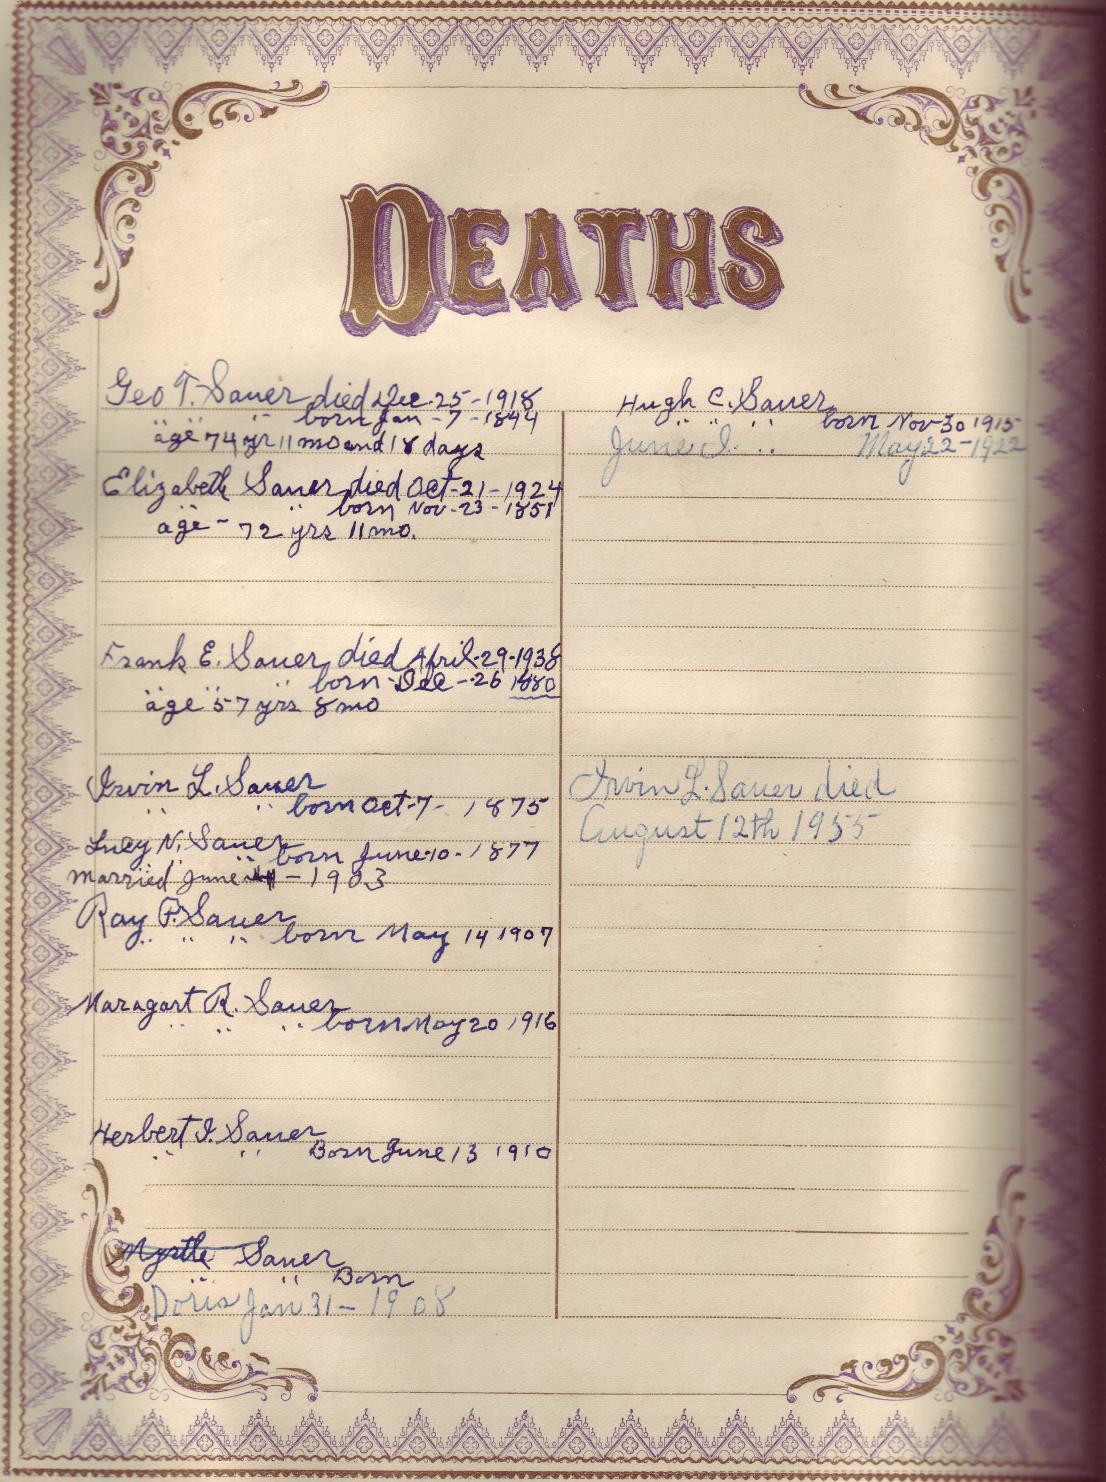 DEATHS
Geo T. Sauer died Dec. 25-1918
" " " born Jan-7-1844
age 74 yr 11 mo and 18 days
Elizabeth Sauer died Oct-21-1924
" " born Nov-23-1851
age - 72 yrs 11 mo.
Frank E. Sauer died April-29-1938
" " " born-Dec-26 1880
age 57 yrs 8 mo
Irvin L. Sauer
" " born Oct-7- 1875
Lucy N. Sauer
" " born June-10-1877
married June - 1903
Ray F. Sauer
" " " born May 14 1907
Maragart R. Sauer
" " " born May 20 1916
Herbert I. Sauer
" " Born June 13 1910
Myrtle Sauer
" " Born
Doris Jan 31-1908
Hugh C. Sauer
" " " born Nov-30 1915
June I. " May 22-1922
Irvin L. Sauer died
August 12th 1955